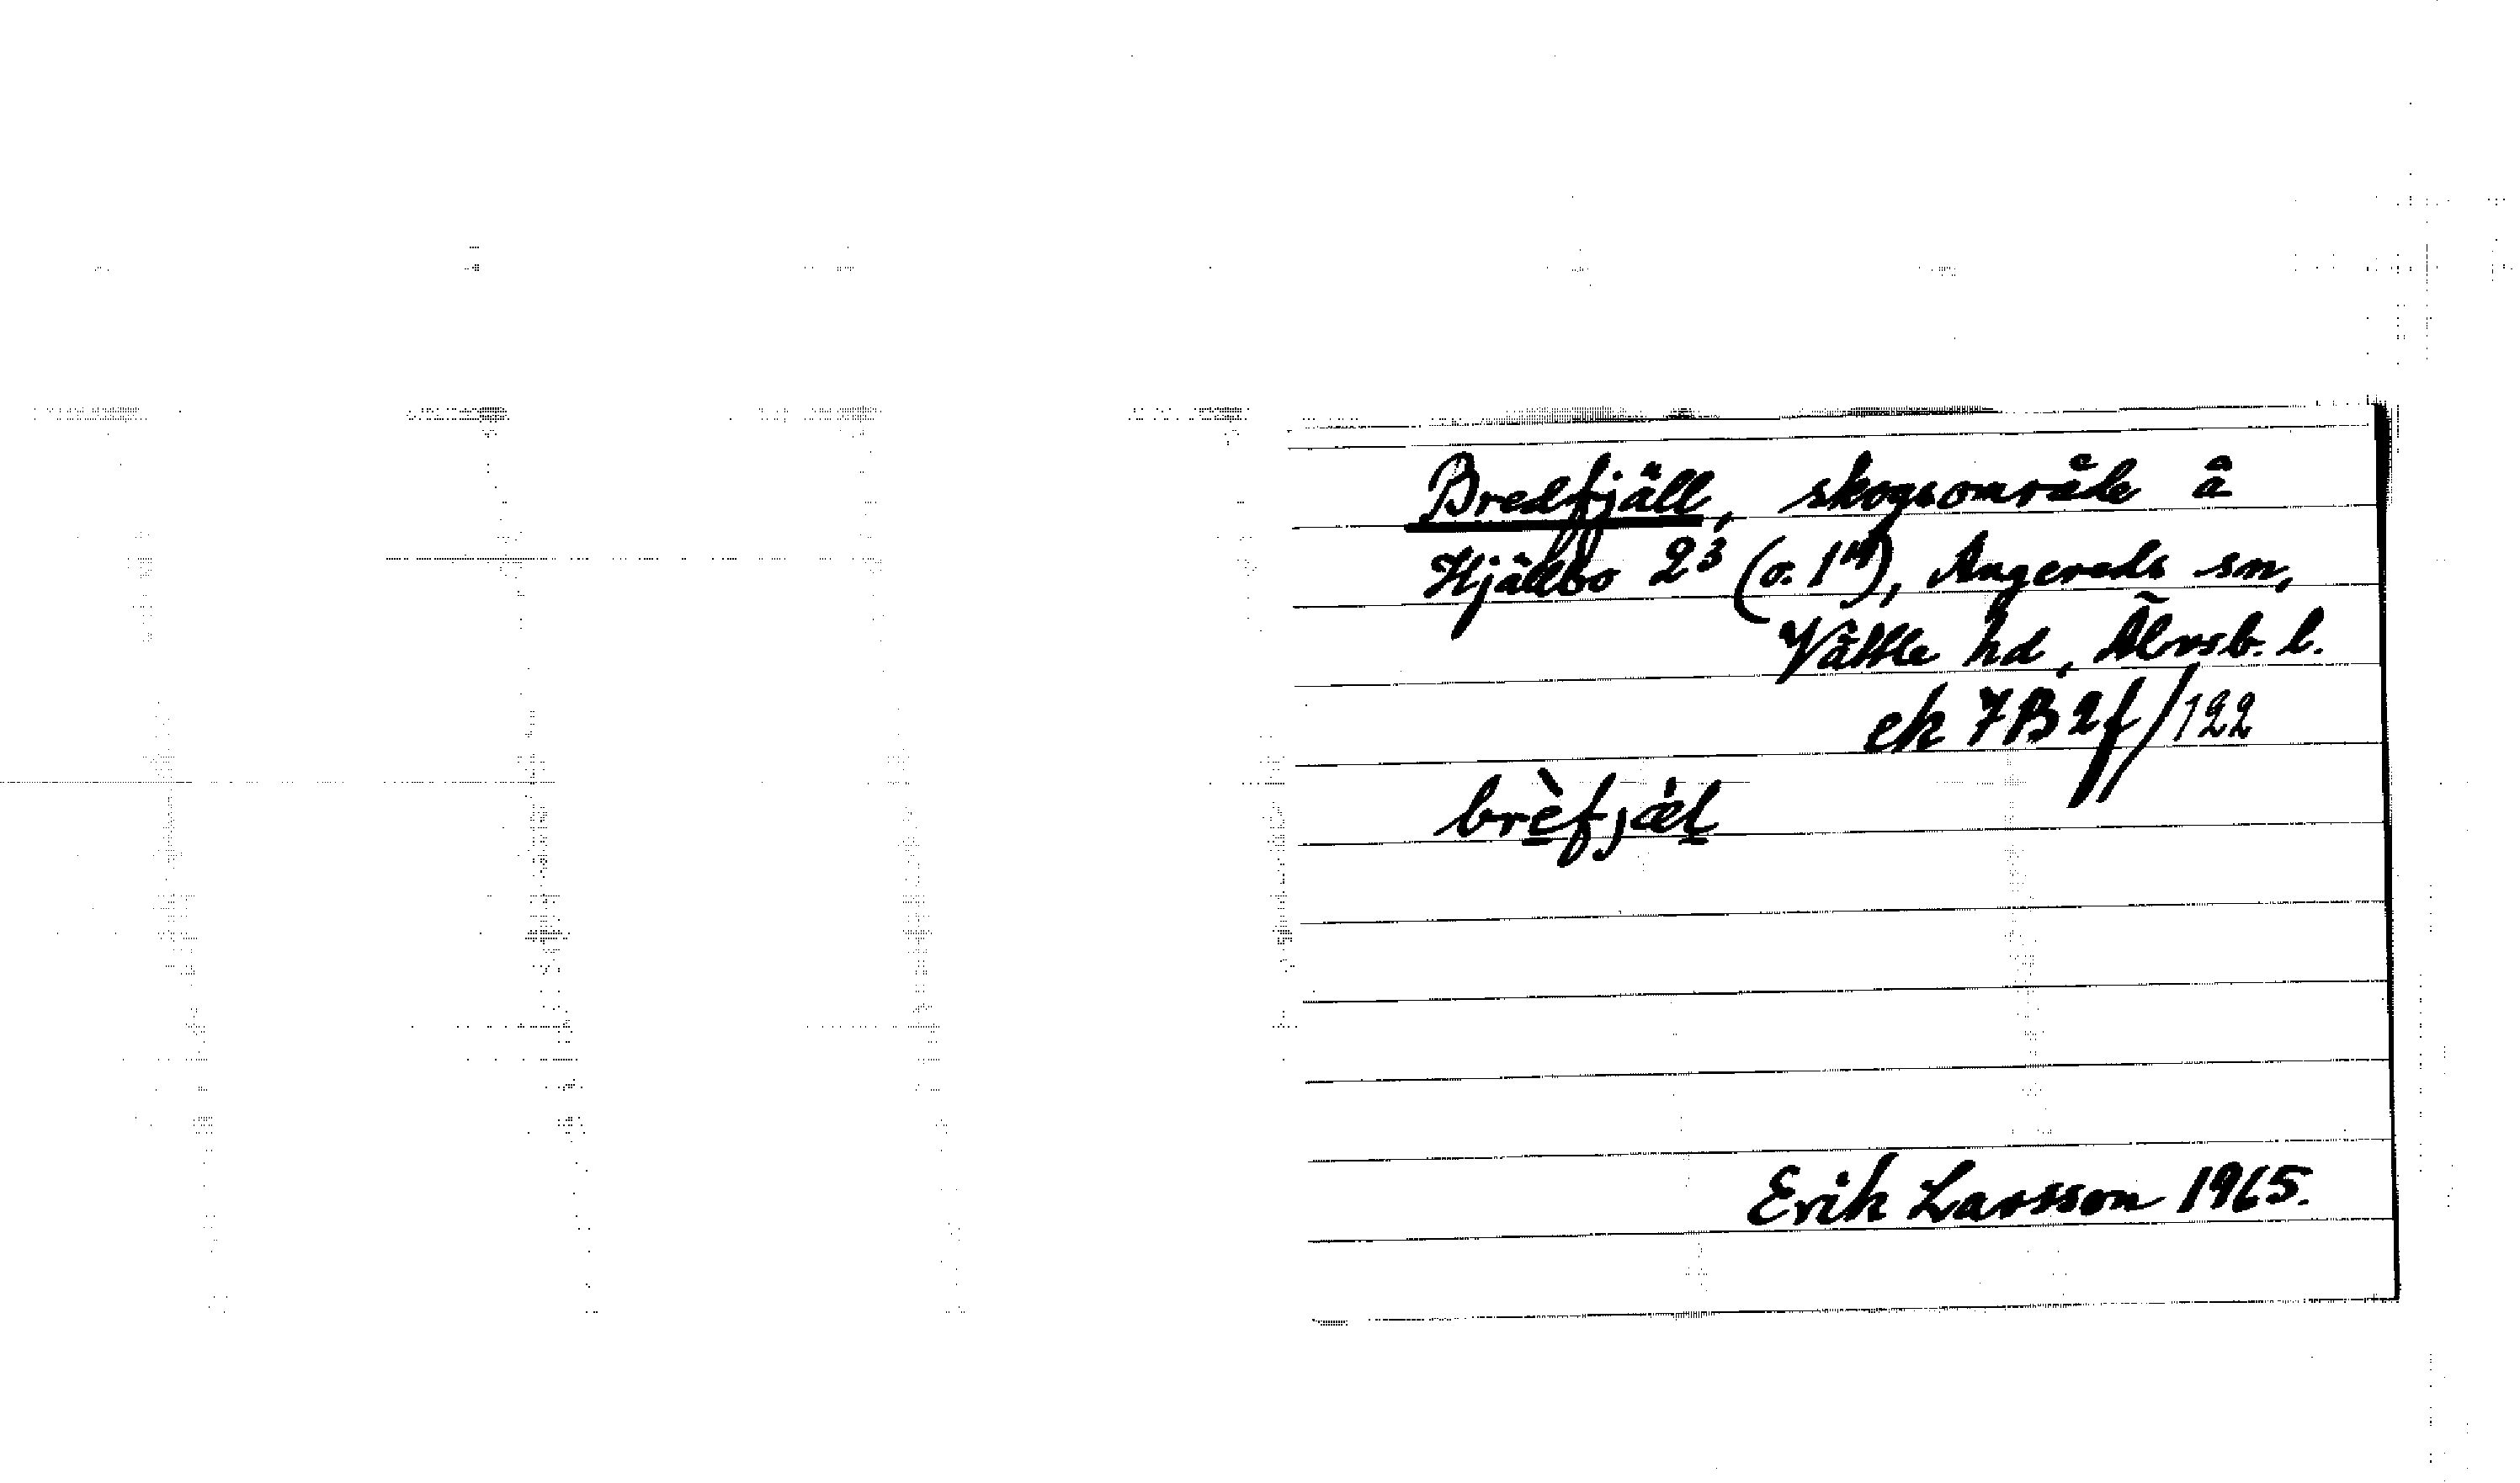 Bredfjäll, skogsområde å
Hjällbo 2³ (o. 1¹⁹), Angereds sm,
Vättle hd, Älvsb. l.
ek 7B 2f/122
brèfjæ̀l
Erik Larsson 1965.